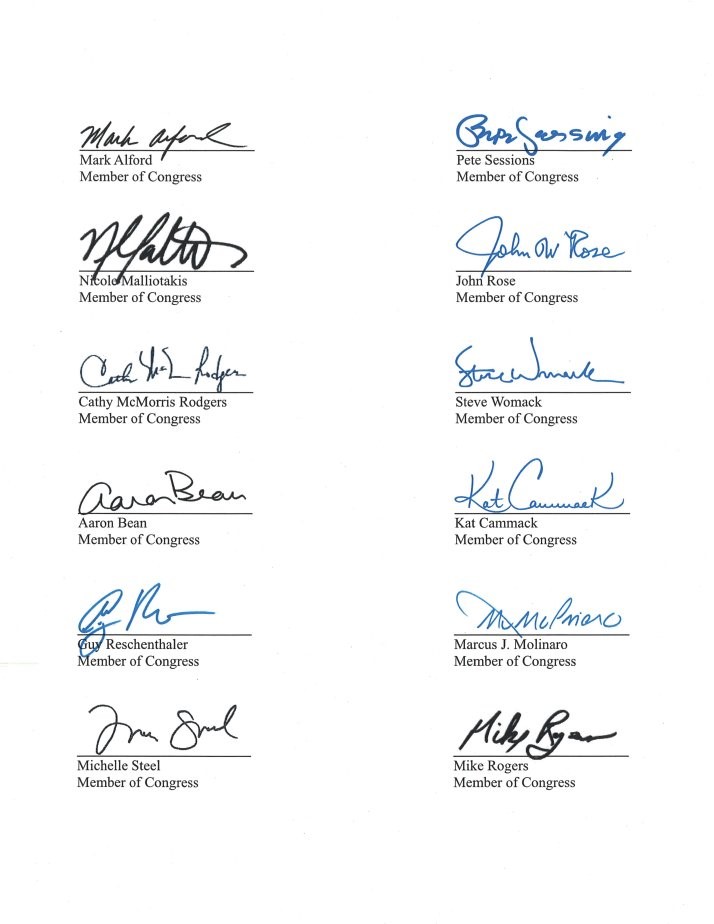 Mark Alford
Mark Alford
Member of Congress
Pete Sessions
Member of Congress
Nicole Malliotakis
Member of Congress
John W Rose
John Rose
Member of Congress
Cathy McMorris Rodgers
Member of Congress
Steve Womack
Steve Womack
Member of Congress
Aaron Bean
Aaron Bean
Member of Congress
Kat Cammack
Kat Cammack
Member of Congress
Guy Reschenthaler
Member of Congress
Marcus J. Molinaro
Member of Congress
Michelle Steel
Member of Congress
Mike Rogers
Mike Rogers
Member of Congress